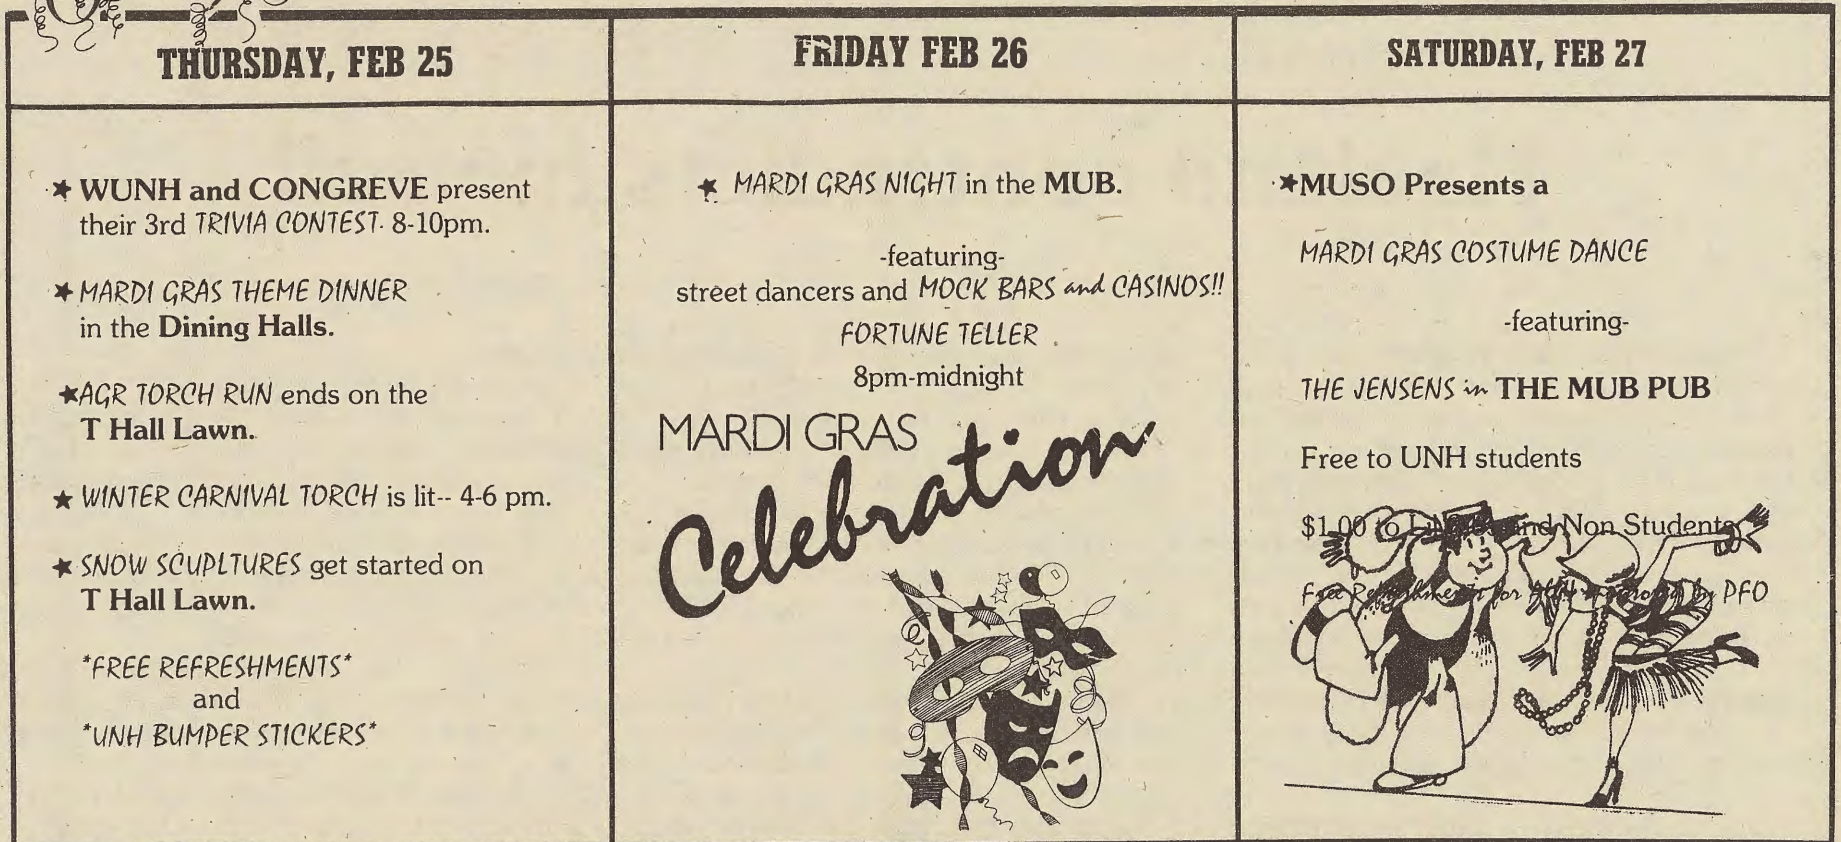 THURSDAY, FEB 25
★ WUNH and CONGREVE present
their 3rd TRIVIA CONTEST. 8-10pm.
★ MARDI GRAS THEME DINNER
in the Dining Halls.
★AGR TORCH RUN ends on the
T Hall Lawn.
★ WINTER CARNIVAL TORCH is lit-- 4-6 pm.
★ SNOW SCUPLTURES get started on
T Hall Lawn.
*FREE REFRESHMENTS*
and
*UNH BUMPER STICKERS*
FRIDAY FEB 26
★ MARDI GRAS NIGHT in the MUB.
-featuring-
street dancers and MOCK BARS and CASINOS!!
FORTUNE TELLER
8pm-midnight
MARDI GRAS
Celebration
SATURDAY, FEB 27
★MUSO Presents a
MARDI GRAS COSTUME DANCE
-featuring-
THE JENSENS in THE MUB PUB
Free to UNH students
$1.00 to and Non Students
Free Refreshments for by PFO